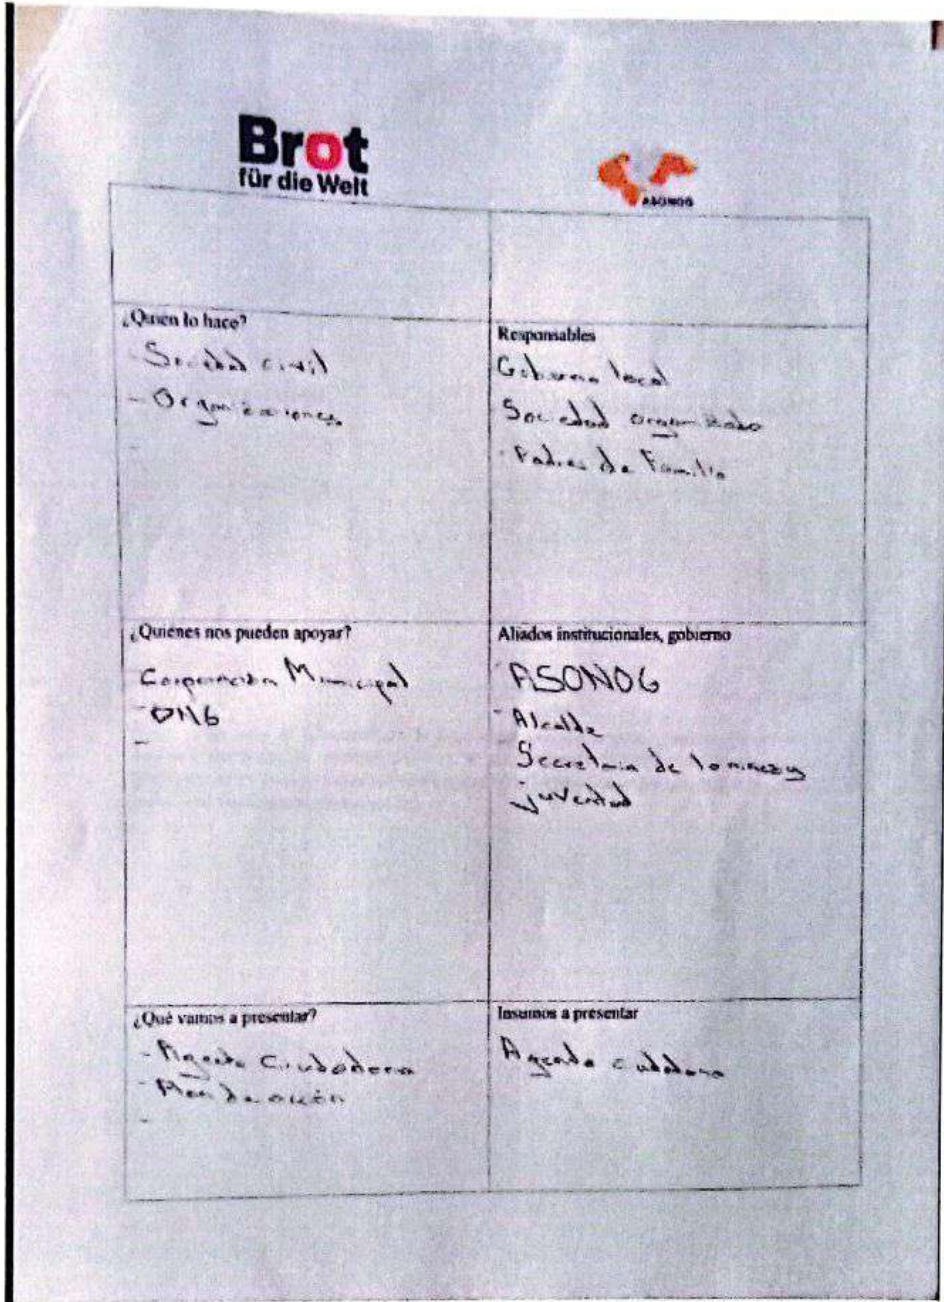 Brot
für die Welt
ASONOG
¿Quien lo hace?
- Sociedad civil
- Organizaciones
-
Responsables
Gobierno local
Sociedad organizado
- Padres de Familia
¿Quienes nos pueden apoyar?
Corporación Municipal
- ONG
-
Aliados institucionales, gobierno
ASONOG
- Alcalde
Secretaria de la niñez y
juventud
¿Qué vamos a presentar?
- Agenda Ciudadana
- Plan de acción
-
Insumos a presentar
Agenda ciudadana